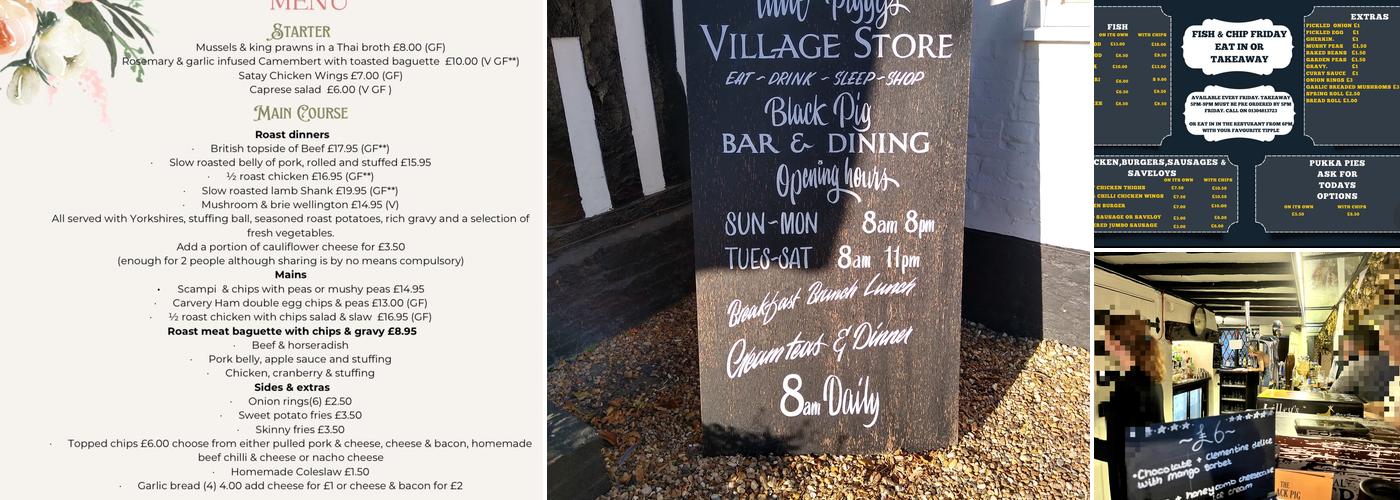 MENU
STARTER
Mussels & king prawns in a Thai broth £8.00 (GF)
Rosemary & garlic infused Camembert with toasted baguette £10.00 (V GF**)
Satay Chicken Wings £7.00 (GF)
Caprese salad £6.00 (V GF )
MAIN COURSE
Roast dinners
· British topside of Beef £17.95 (GF**)
· Slow roasted belly of pork, rolled and stuffed £15.95
· ½ roast chicken £16.95 (GF**)
· Slow roasted lamb Shank £19.95 (GF**)
· Mushroom & brie wellington £14.95 (V)
All served with Yorkshires, stuffing ball, seasoned roast potatoes, rich gravy and a selection of
fresh vegetables.
Add a portion of cauliflower cheese for £3.50
(enough for 2 people although sharing is by no means compulsory)
Mains
· Scampi & chips with peas or mushy peas £14.95
· Carvery Ham double egg chips & peas £13.00 (GF)
· ½ roast chicken with chips salad & slaw £16.95 (GF)
Roast meat baguette with chips & gravy £8.95
· Beef & horseradish
· Pork belly, apple sauce and stuffing
· Chicken, cranberry & stuffing
Sides & extras
· Onion rings(6) £2.50
· Sweet potato fries £3.50
· Skinny fries £3.50
· Topped chips £6.00 choose from either pulled pork & cheese, cheese & bacon, homemade
beef chilli & cheese or nacho cheese
· Homemade Coleslaw £1.50
· Garlic bread (4) 4.00 add cheese for £1 or cheese & bacon for £2
Piggy's
VILLAGE STORE
EAT ~ DRINK ~ SLEEP ~ SHOP
Black Pig
BAR & DINING
Opening hours
SUN-MON 8am 8pm
TUES-SAT 8am 11pm
Breakfast Brunch Lunch
Cream teas & Dinner
8am Daily
FISH
ON ITS OWN WITH CHIPS
FISH & CHIP FRIDAY
EAT IN OR
TAKEAWAY
AVAILABLE EVERY FRIDAY. TAKEAWAY
5PM-9PM MUST BE PRE ORDERED BY 5PM
FRIDAY. CALL ON 01304813723
OR EAT IN IN THE RESTURANT FROM 6PM,
WITH YOUR FAVOURITE TIPPLE
EXTRAS
PICKLED ONION £1
PICKLED EGG £1
GHERKIN. £1
MUSHY PEAS £1.50
BAKED BEANS £1.50
GARDEN PEAS £1.50
GRAVY. £1
CURRY SAUCE £1
ONION RINGS £3
GARLIC BREADED MUSHROOMS £3
SPRING ROLL £2.50
BREAD ROLL £1.00
BURGERS,SAUSAGES &
SAVELOYS
ON ITS OWN WITH CHIPS
CHICKEN THIGHS £7.50 £10.50
CHILLI CHICKEN WINGS £7.50 £10.50
BURGER £7.00 £10.00
SAUSAGE OR SAVELOY £3.00 £6.00
JUMBO SAUSAGE £3.00 £6.00
PUKKA PIES
ASK FOR
TODAYS
OPTIONS
ON ITS OWN WITH CHIPS
£5.50 £8.50
~£6~
• Chocolate + Clementine delice
with mango Sorbet
honeycomb cheesecake
ice cream
THE
BLACK PIG